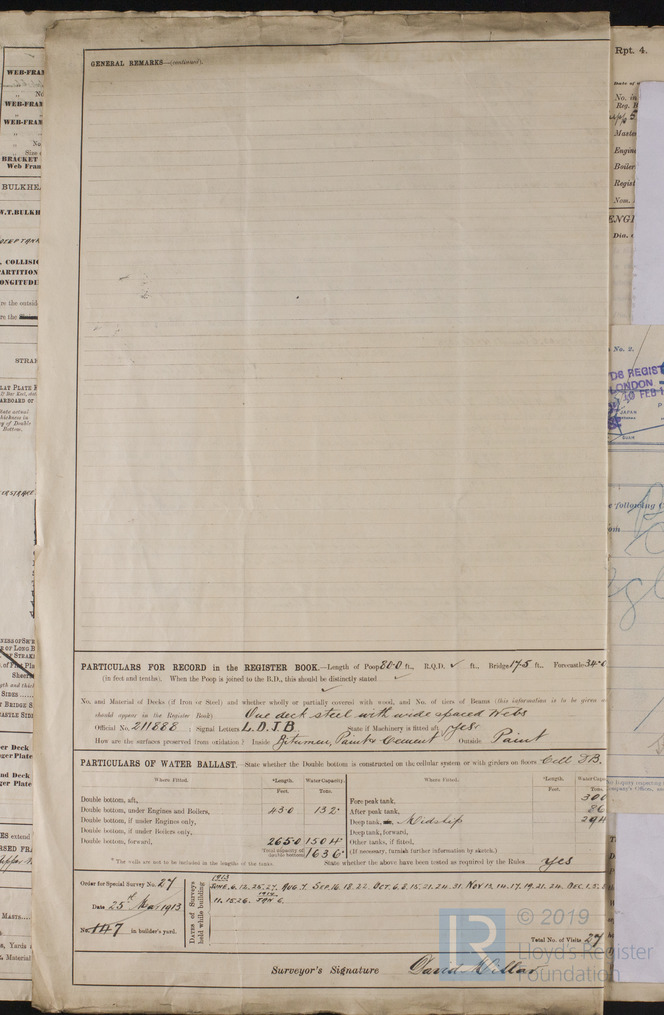 GENERAL REMARKS—(continued).
PARTICULARS FOR RECORD in the REGISTER BOOK.—Length of Poop 20·0 ft., R.Q.D. ✓ ft., Bridge 17·5 ft., Forecastle 34·0
(in feet and tenths). When the Poop is joined to the B.D., this should be distinctly stated ✓
No. and Material of Decks (if Iron or Steel) and whether wholly or partially covered with wood, and No. of tiers of Beams (this information is to be given as
should appear in the Register Book) One deck steel with wide spaced Webs
Official No. 211888 ; Signal Letters L.D.J.B. State if Machinery is fitted aft Yes.
How are the surfaces preserved from oxidation? Inside Bitumen, Paint & Cement Outside Paint
PARTICULARS OF WATER BALLAST.—State whether the Double bottom is constructed on the cellular system or with girders on floors Cell D.B.
Where Fitted. *Length. Water Capacity. Where Fitted. *Length. Water Capac
Feet. Tons. Feet. Tons.
Double bottom, aft, Fore peak tank, 300
Double bottom, under Engines and Boilers, 43·0 132· After peak tank,
Double bottom, if under Engines only, Deep tank, Midship 294
Double bottom, if under Boilers only, Deep tank, forward,
Double bottom, forward, 265·0 1504· Other tanks, if fitted,
Total capacity of double bottom 1636· (If necessary, furnish further information by sketch.)
* The wells are not to be included in the lengths of the tanks. State whether the above have been tested as required by the Rules Yes
Order for Special Survey No. 27
Date 25th Mar 1913
No. 147 in builder's yard.
Dates of Surveys held while building
1913
JUNE. 6. 12. 25. 27. AUG. 7. SEP. 16. 18. 22. OCT. 6. 8. 15. 21. 24. 31. NOV. 11. 14. 17. 19. 21. 24. DEC. 1. 5. 8
1914
11. 15. 26. JAN 6.
Total No. of Visits 27
Surveyor's Signature David Millar
© 2019
Lloyd's Register
Foundation
WEB-FRAM
WEB-FRAM
WEB-FRAM
BRACKET
Web Fram
BULKHEA
W.T.BULKH
DEEP TANK
, COLLISIO
PARTITION
ONGITUDI
STRAK
Rpt. 4.
No. in
Reg. B
Maste
Engin
Boiler
Regist
Nom.
ENGI
Dia. o
No. 2.
DS REGIST
LONDON
10 FEB 1
JAPAN
e following